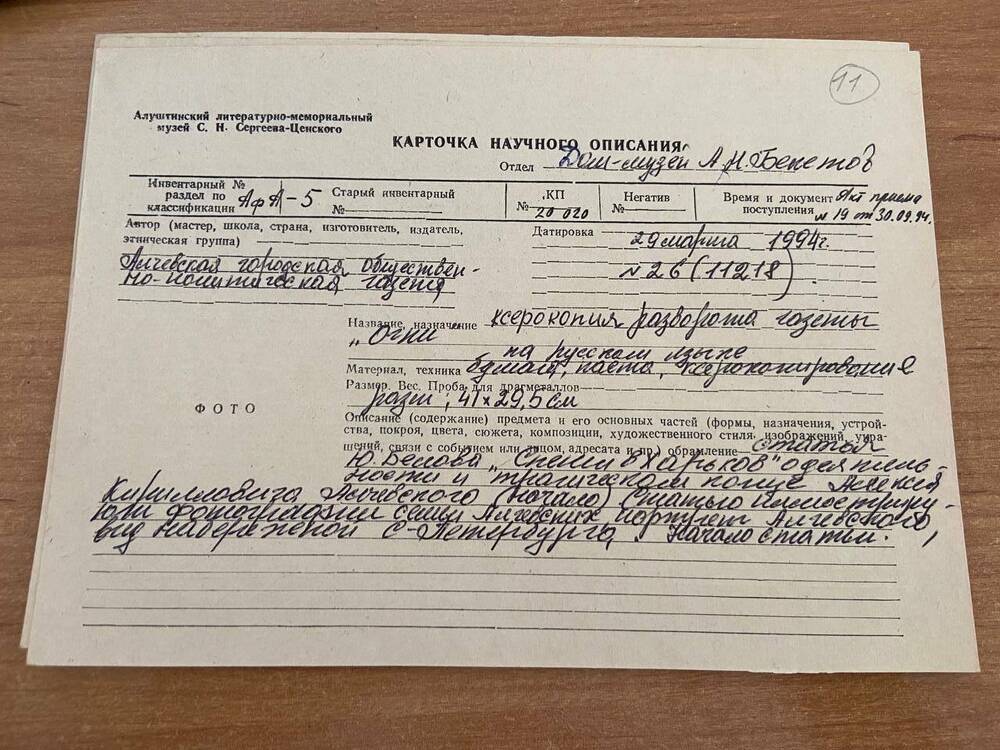 11
Алуштинский литературно-мемориальный
музей С. Н. Сергеева-Ценского
КАРТОЧКА НАУЧНОГО ОПИСАНИЯ
Отдел Дом-музей А.Н.Бекетов
Инвентарный № раздел по классификации АфА-5
Старый инвентарный №
КП № 20 020
Негатив №
Время и документ поступления Акт приема № 19 от 30.09.94.
Автор (мастер, школа, страна, изготовитель, издатель,
этническая группа)
Алчевская городская обществен-
но-политическая газета
Датировка 29 марта 1994г.
№ 26 (11218)
Название, назначение ксерокопия разворота газеты
"Огни"
на русском языке
Материал, техника бумага, паста, ксерокопирование
Размер. Вес. Проба для драгметаллов
разм; 41 х 29,5 см
ФОТО
Описание (содержание) предмета и его основных частей (формы, назначения, устрой-
ства, покроя, цвета, сюжета, композиции, художественного стиля, изображений, укра-
шений, связи с событием или лицом, адресата и пр.) обрамление статья
Ю.Белова "Спеши в Харьков" о деятель-
ности и трагическом конце Алексея
Кирилловича Алчевского (начало) Статью иллюстриру-
ют фотографии семьи Алчевских портрет Алчевского,
вид набережной С-Петербурга, Начало статьи.